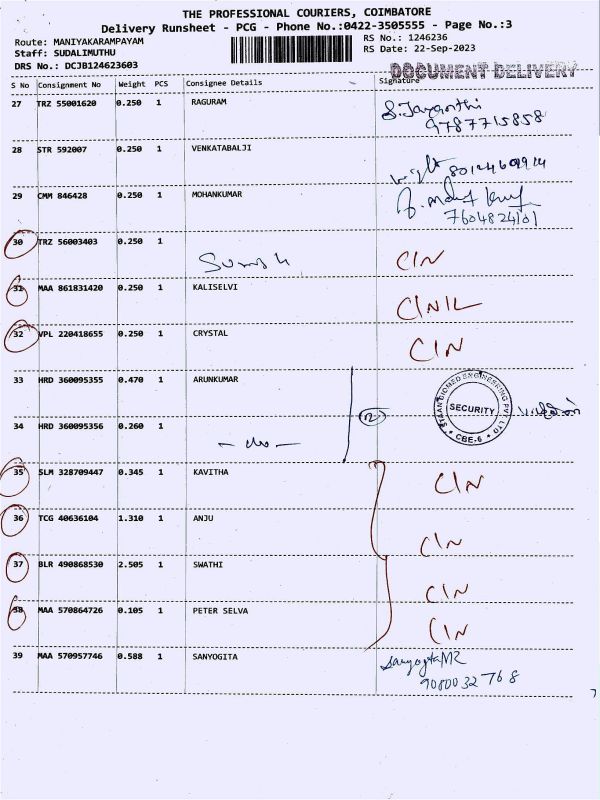 THE PROFESSIONAL COURIERS, COIMBATORE
Delivery Runsheet - PCG - Phone No.:0422-3505555 - Page No.:3
Route: MANIYAKARAMPAYAM
RS No.: 1246236
Staff: SUDALIMUTHU
RS Date: 22-Sep-2023
DRS No.: DCJB124623603
DOCUMENT DELIVERY
S No Consignment No Weight PCS Consignee Details Signature
27 TRZ 55001620 0.250 1 RAGURAM S. Jayanthi
9787715858
28 STR 592007 0.250 1 VENKATABALJI
29 CMM 846428 0.250 1 MOHANKUMAR
7604824101
30 TRZ 56003403 0.250 1 CIN
31 MAA 861831420 0.250 1 KALISELVI CINIL
32 VPL 220418655 0.250 1 CRYSTAL CIN
33 HRD 360095355 0.470 1 ARUNKUMAR
2
SIAAN BIOMED ENGINEERING PVT. LTD
SECURITY
* CBE-6 *
34 HRD 360095356 0.260 1
- do -
35 SLM 328709447 0.345 1 KAVITHA CIN
36 TCG 40636104 1.310 1 ANJU CIN
37 BLR 490868530 2.505 1 SWATHI CIN
38 MAA 570864726 0.105 1 PETER SELVA CIN
39 MAA 570957746 0.588 1 SANYOGITA Sanyogita MR
9080032768